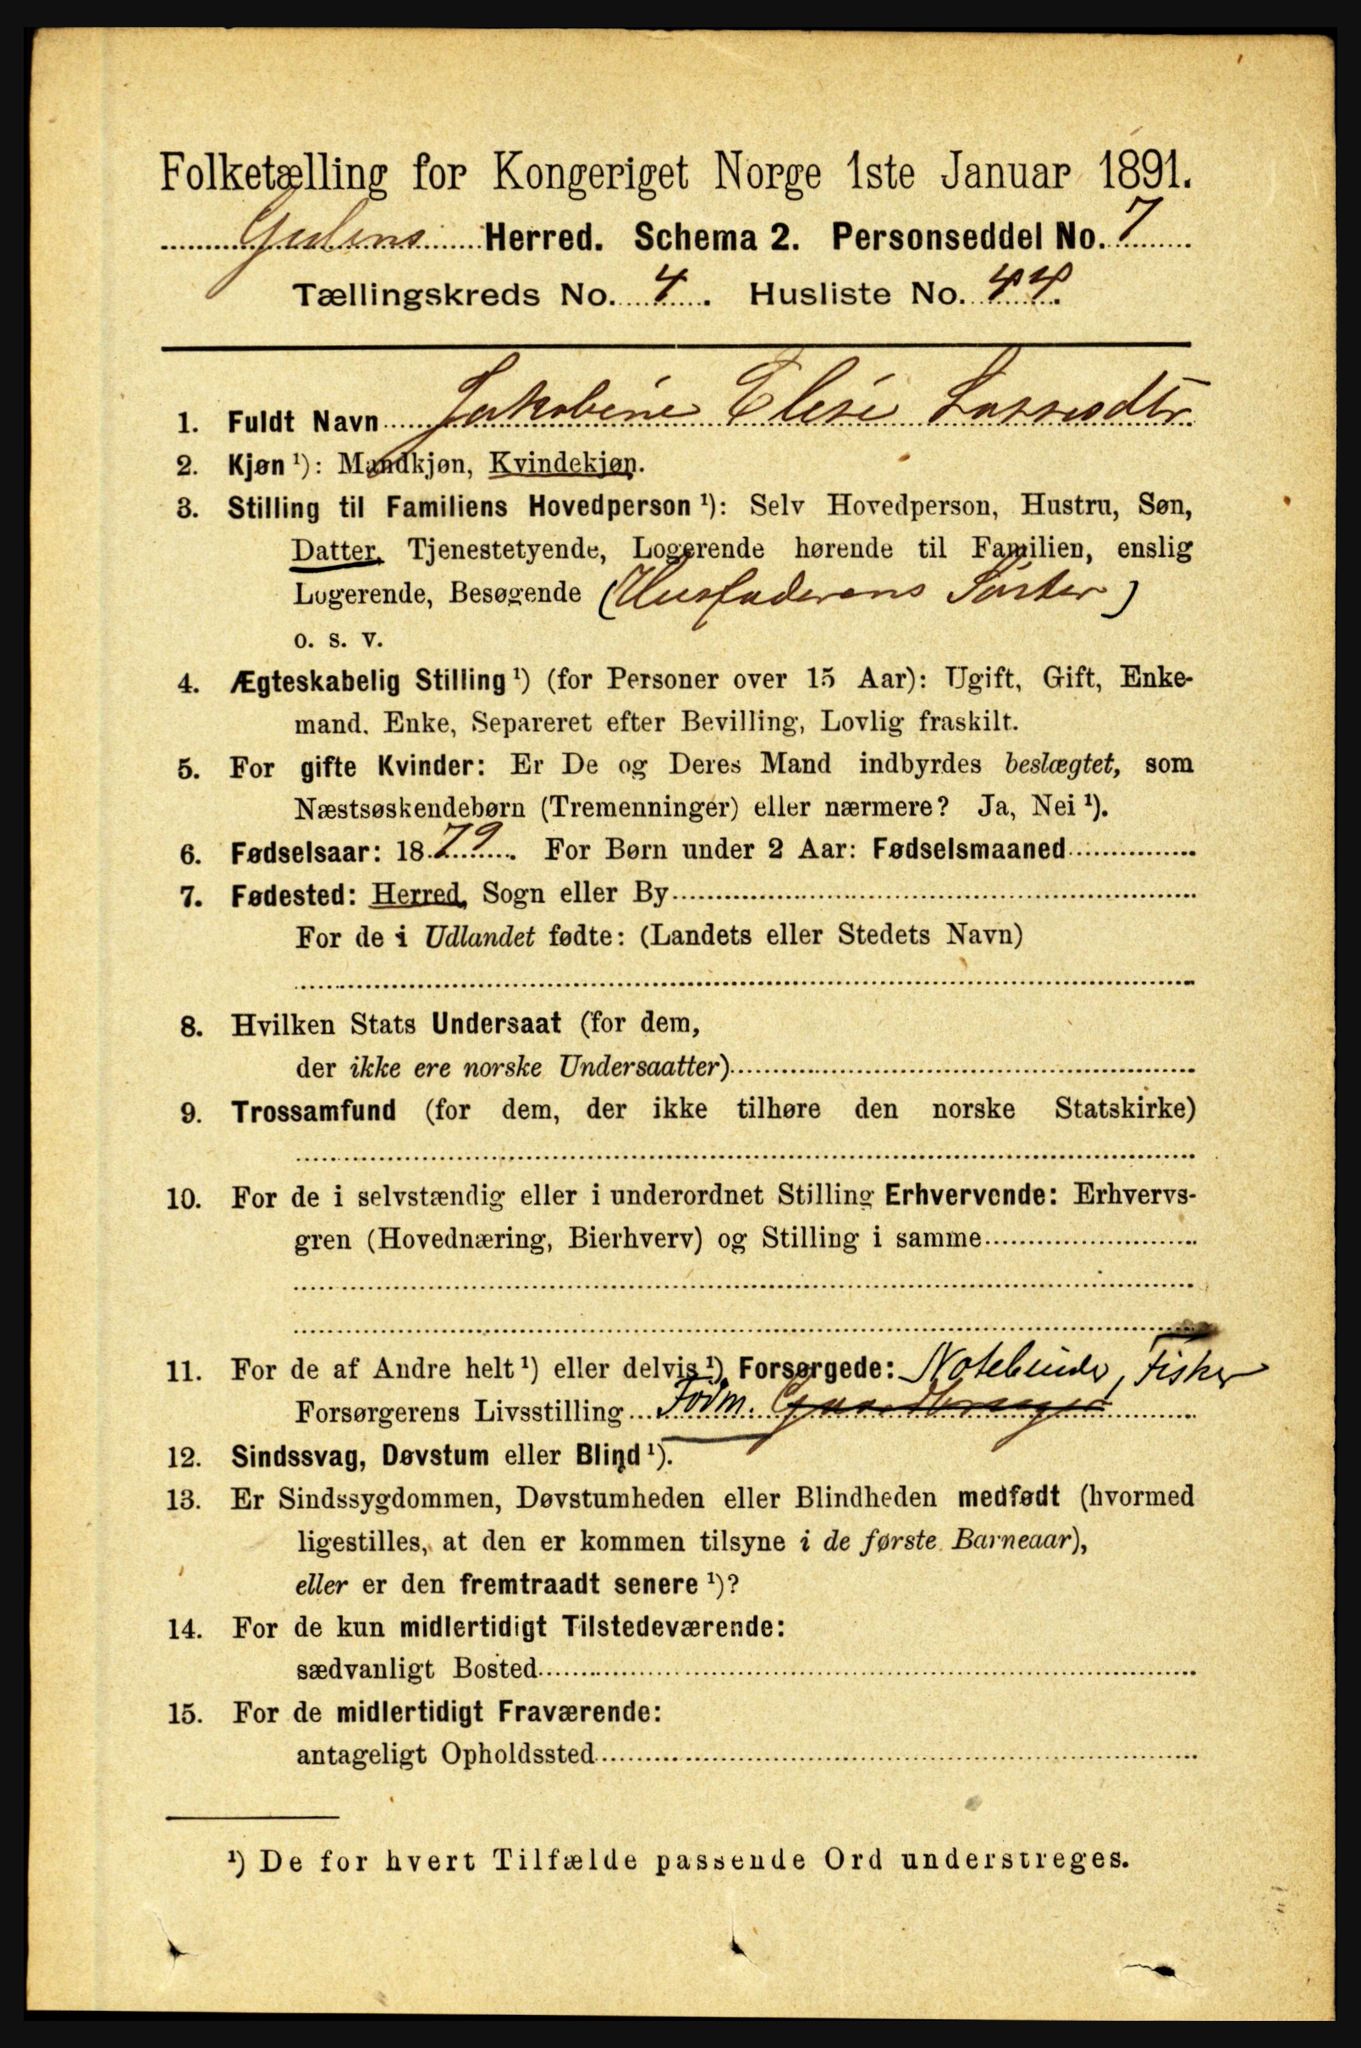 Folketælling for Kongeriget Norge 1ste Januar 1891.
Gulens Herred. Schema 2. Personseddel No. 7
Tællingskreds No. 4. Husliste No. 44.
1. Fuldt Navn Jakobine Elise Lassesdtr
2. Kjøn ¹): Mandkjøn, Kvindekjøn.
3. Stilling til Familiens Hovedperson ¹): Selv Hovedperson, Hustru, Søn,
Datter, Tjenestetyende, Logerende hørende til Familien, enslig
Logerende, Besøgende (Husfaderens Søster)
o. s. v.
4. Ægteskabelig Stilling ¹) (for Personer over 15 Aar): Ugift, Gift, Enke-
mand, Enke, Separeret efter Bevilling, Lovlig fraskilt.
5. For gifte Kvinder: Er De og Deres Mand indbyrdes beslægtet, som
Næstsøskendebørn (Tremenninger) eller nærmere? Ja, Nei ¹).
6. Fødselsaar: 1879. For Børn under 2 Aar: Fødselsmaaned
7. Fødested: Herred, Sogn eller By
For de i Udlandet fødte: (Landets eller Stedets Navn)
8. Hvilken Stats Undersaat (for dem,
der ikke ere norske Undersaatter)
9. Trossamfund (for dem, der ikke tilhøre den norske Statskirke)
10. For de i selvstændig eller i underordnet Stilling Erhvervende: Erhvervs-
gren (Hovednæring, Bierhverv) og Stilling i samme
11. For de af Andre helt ¹) eller delvis ¹) Forsørgede: Notebinder, Fisker
Forsørgerens Livsstilling Jodm. Gaardbruger
12. Sindssvag, Døvstum eller Blind ¹).
13. Er Sindssygdommen, Døvstumheden eller Blindheden medfødt (hvormed
ligestilles, at den er kommen tilsyne i de første Barneaar),
eller er den fremtraadt senere ¹)?
14. For de kun midlertidigt Tilstedeværende:
sædvanligt Bosted
15. For de midlertidigt Fraværende:
antageligt Opholdssted
¹) De for hvert Tilfælde passende Ord understreges.